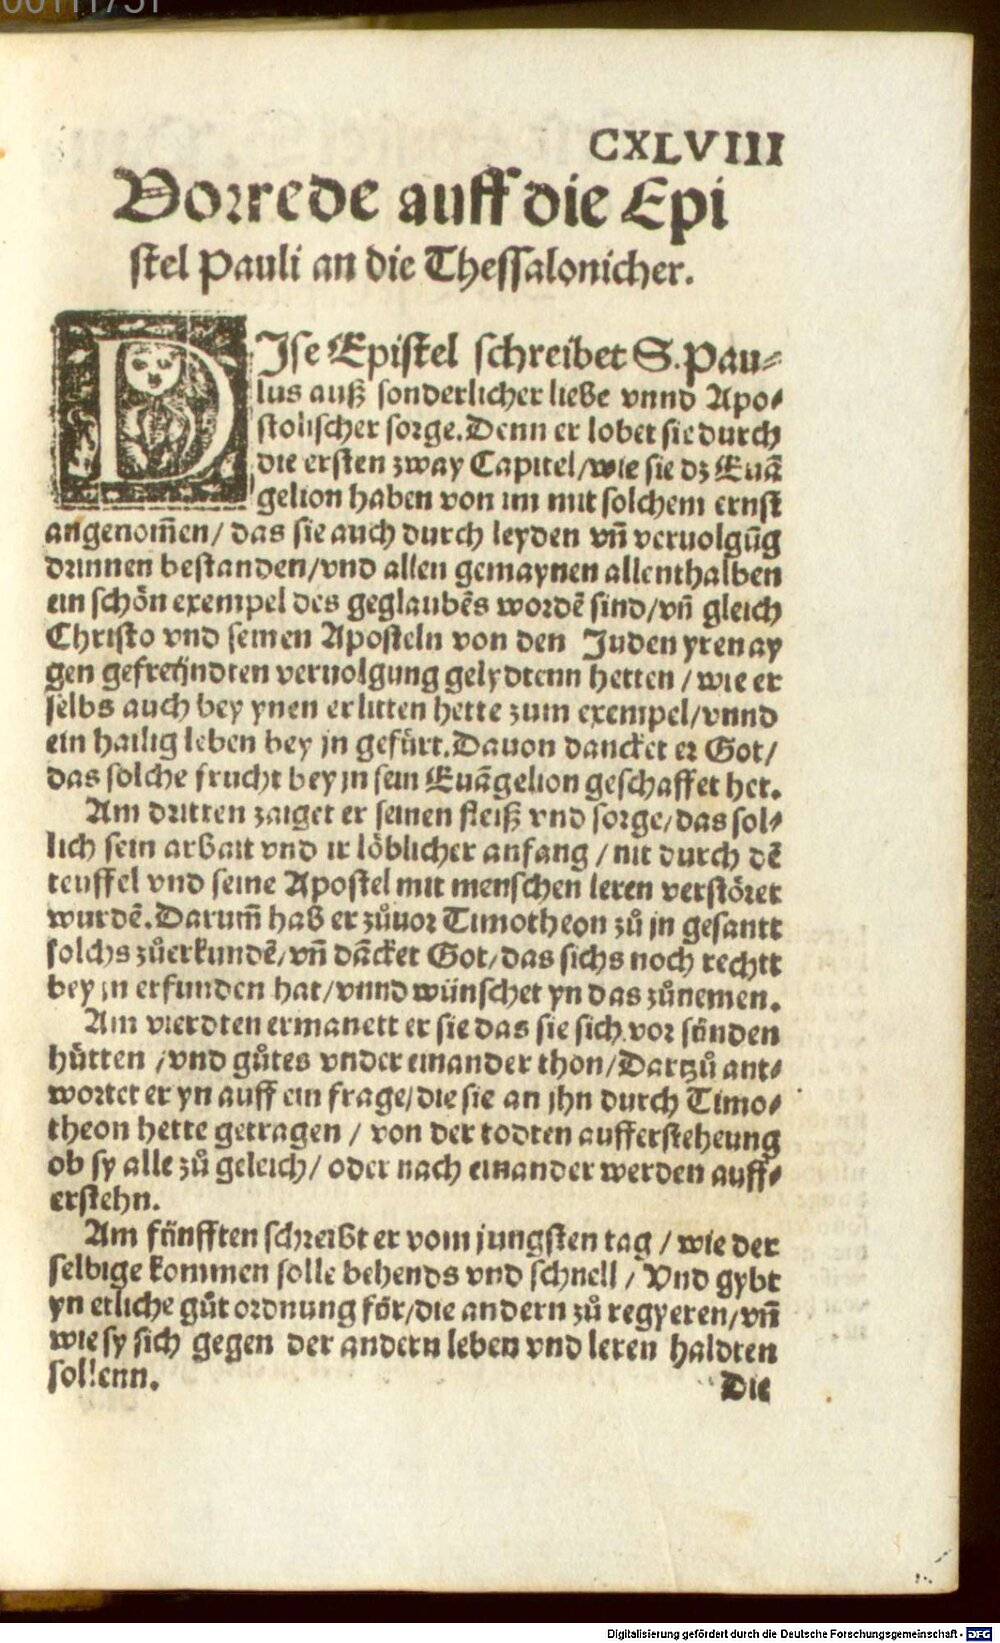 CXLVIII
Vorrede auff die Epi
stel Pauli an die Thessalonicher.
DIse Epistel schreibet S. Pau⸗
lus auß sonderlicher liebe vnnd Apo⸗
stolischer sorge. Denn er lobet sie durch
die ersten zway Capitel/wie sie dz Euā
gelion haben von im mit solchem ernst
angenom̄en/ das sie auch durch leyden vn̄ veruolgūg
drinnen bestanden/vnd allen gemaynen allenthalben
ein schön exempel des geglaubēs wordē sind/vn̄ gleich
Christo vnd seinen Aposteln von den Juden yren ay
gen gefreündten veruolgung gelydtenn hetten / wie er
selbs auch bey ynen erlitten hette zum exempel/vnnd
ein hailig leben bey jn gefürt. Dauon dancket er Got/
das solche frucht bey jn sein Euāgelion geschaffet het.
Am dritten zaiget er seinen fleiß vnd sorge/das sol⸗
lich sein arbait vnd ir löblicher anfang / nit durch dē
teuffel vnd seine Apostel mit menschen leren verstöret
wurdē. Darum̄ hab er zůuor Timotheon zů jn gesantt
solchs zůerkundē/vn̄ dācket Got/das sichs noch rechtt
bey jn erfunden hat/vnnd wünschet yn das zůnemen.
Am vierdten ermanett er sie das sie sich vor sünden
hütten /vnd gůtes vnder einander thon/Dartzů ant⸗
wortet er yn auff ein frage/die sie an jhn durch Timo⸗
theon hette getragen / von der todten aufferstehung
ob sy alle zů geleich/ oder nach einander werden auff⸗
erstehn.
Am fünfften schreibt er vom jungsten tag / wie der
selbige kommen solle behends vnd schnell / Vnd gybt
yn etliche gůt ordnung für/die andern zů regyeren/vn̄
wie sy sich gegen der andern leben vnd leren haldten
sollenn.
Die
Digitalisierung gefördert durch die Deutsche Forschungsgemeinschaft - DFG